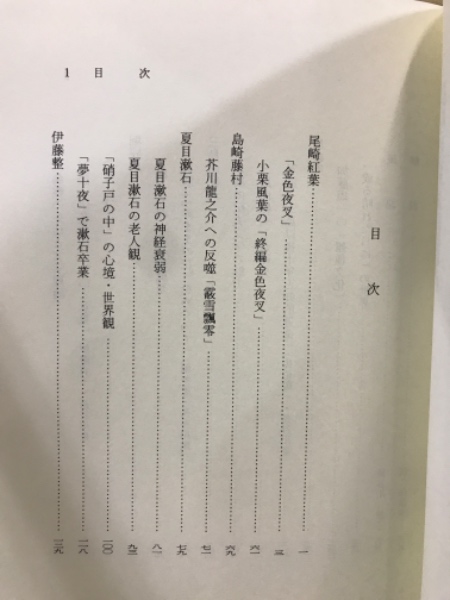 目次
尾崎紅葉……一
「金色夜叉」……三
小栗風葉の「終編金色夜叉」……六一
島崎藤村……六九
芥川龍之介への反噬「霰雪飄零」……七一
夏目漱石……七九
夏目漱石の神経衰弱……八一
夏目漱石の老人観……九三
「硝子戸の中」の心境・世界観……一〇〇
「夢十夜」で漱石卒業……一一八
伊藤整……一三九
1 目次